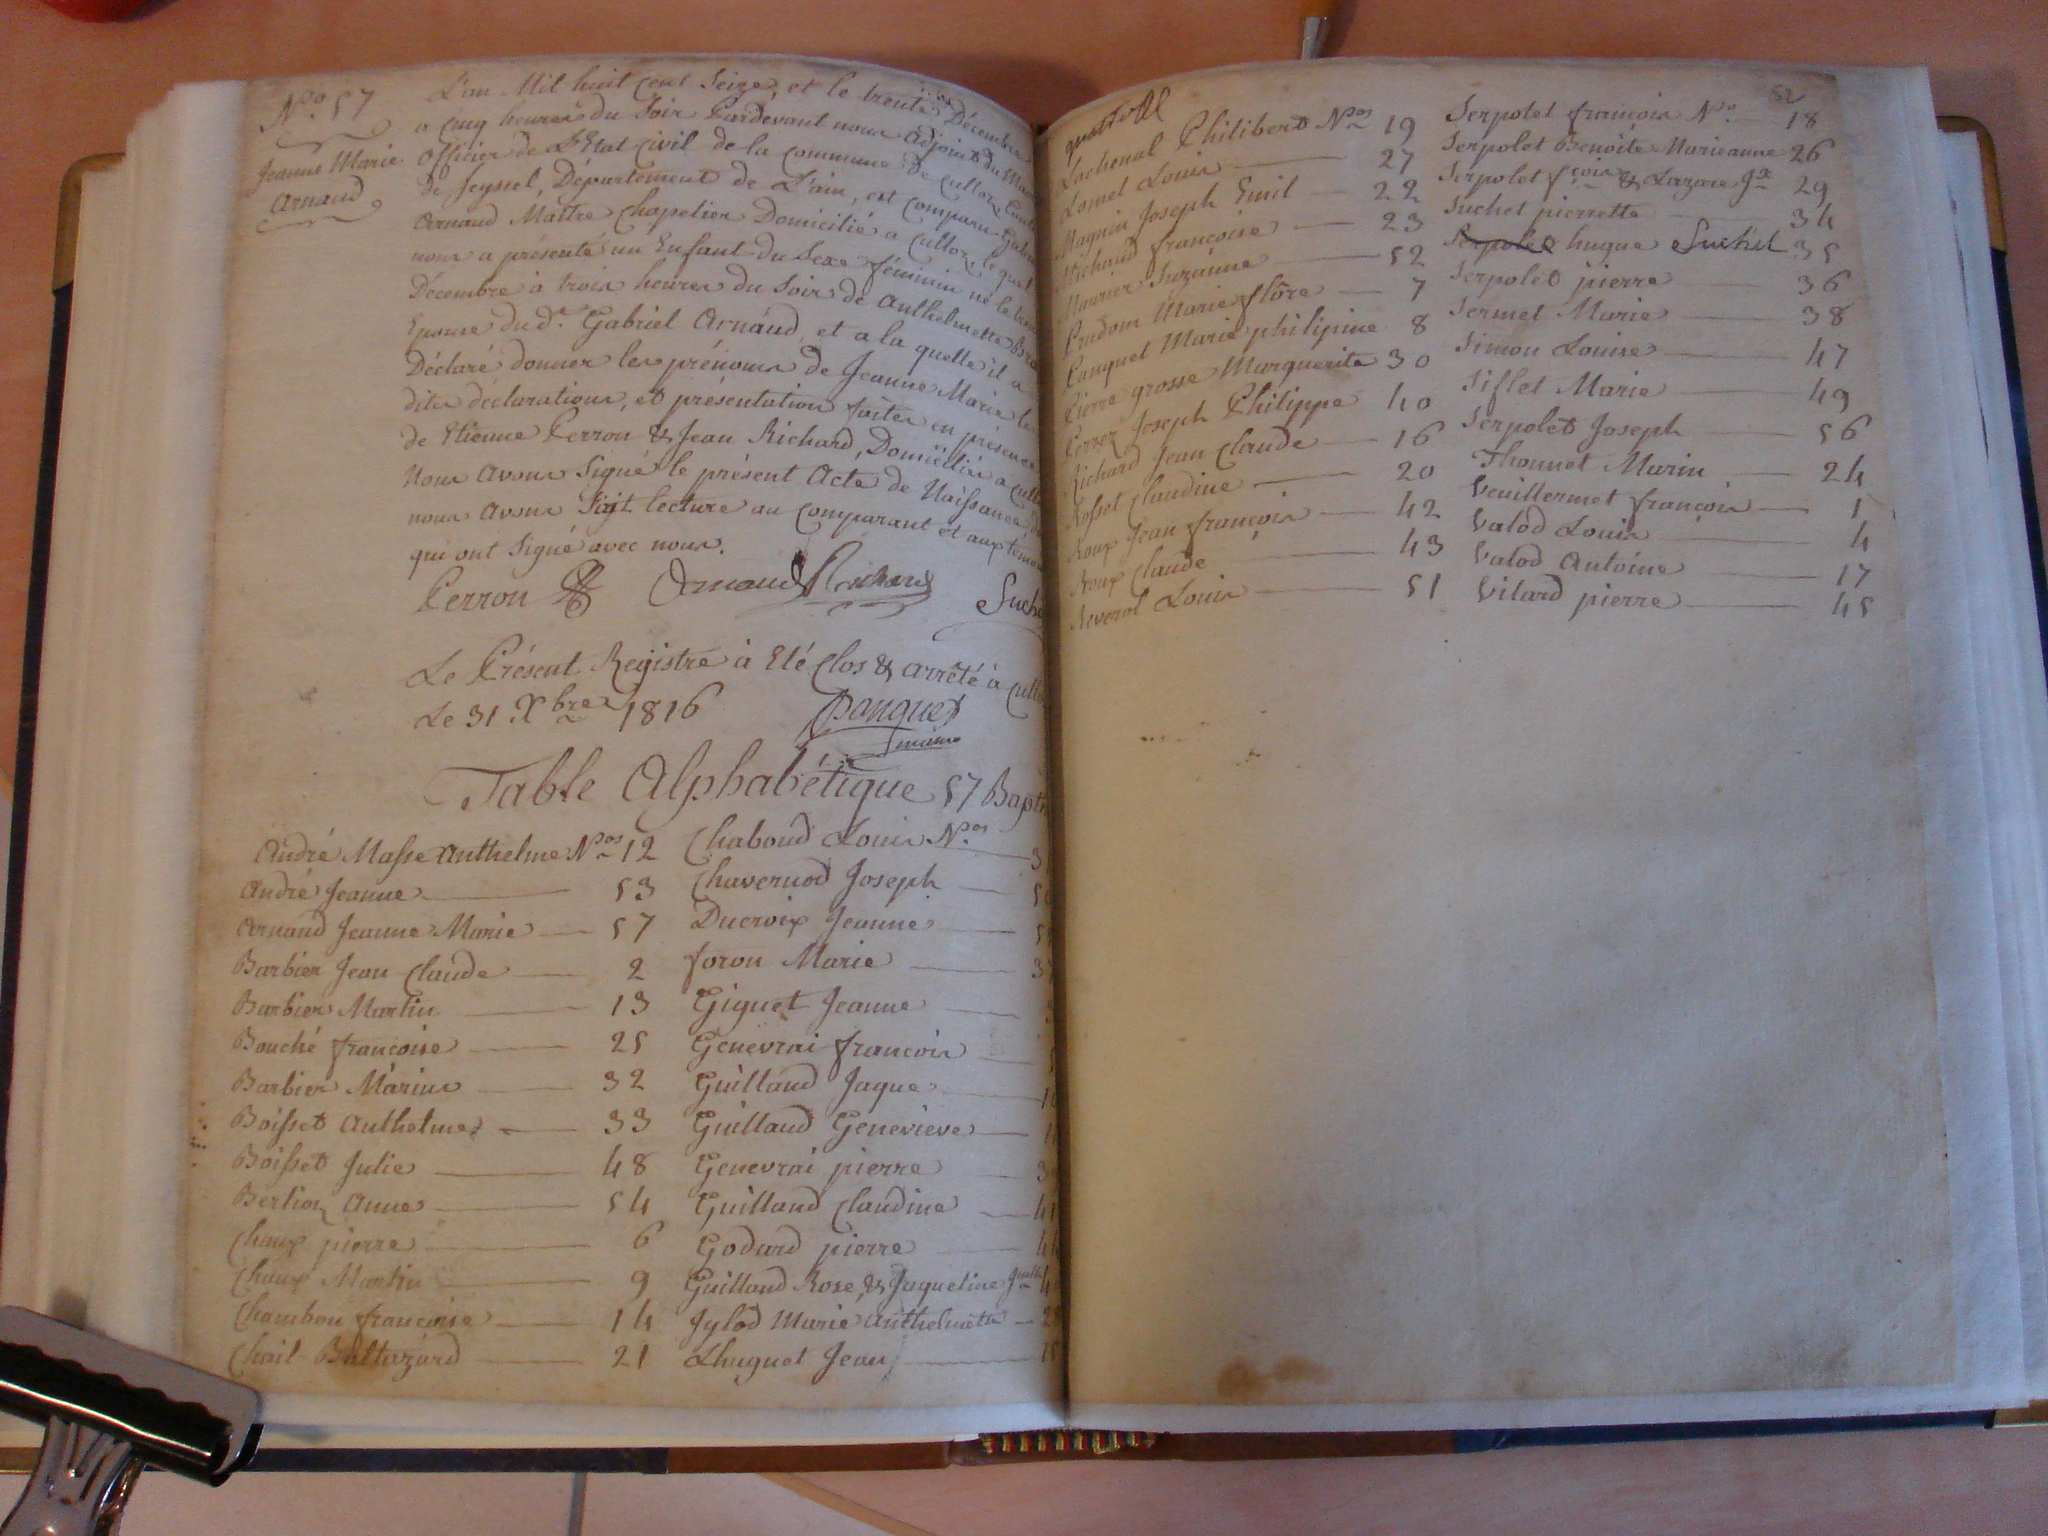 N.o 57
Jeanne Marie
Arnaud
L'an Mil huit cent Seize, et le trente Décembre
a cinq heures du Soir Pardevant nous Adjoint du
Officier de L'Etat Civil de la commune de Culloz
de Seyssel, Département de L'ain, est comparu
Arnaud Maitre Chapelier Domicilié a Culloz, le quel
nous a présenté un Enfant du Sexe féminin né le
Décembre à trois heures du Soir de Anthelmette
Epouse du d.t Gabriel Arnaud, et a la quelle il a
Déclaré donner les prénoms de Jeanne Marie les
dites déclarations, et présentation faites en présence
de Etienne Perron & Jean Richard, Domiciliés a
Nous avons Signé le présent Acte de Naissance
nous avons fait lecture au comparant et aux
qui ont Signé avec nous.
Perron Arnaud Richard
Le Présent Registre à Eté Clos & arrêté à
Le 31 Xbre 1816
Panquet
Table Alphabétique 57
André Masse Anthelme Nos 12
André Jeanne 53
Arnaud Jeanne Marie 57
Barbier Jean Claude 2
Barbier Martin 13
Bouché françoise 25
Barbier Marius 32
Boisset Anthelme 33
Boisset Julie 48
Bertion Anne 54
Chaux pierre 6
Chaux Martin 9
Chambon françoise 14
Chail Baltazard 21
Chaboud Louis Nos
Chavernod Joseph
Ducroix Jeanne
foron Marie
Giguet Jeanne
Genevrai françois
Guilland Jaque
Guilland Genevieve
Genevrai pierre
Guilland Claudine
Godard pierre
Guilland Rose, & Jaqueline
Jylod Marie Anthelmete
Lhuguet Jean
52
Lachenal Philibert Nos 19
Lomel Louis 27
Magnin Joseph Emil 22
Michaud françoise 23
Maurier Suzanne 52
Prudom Marie flôre 7
Panquet Marie philipine 8
Pierre grosse Marguerite 30
Perrez Joseph Philippe 40
Richard Jean Claude 16
Rosset Claudine 20
Roux Jean françois 42
Roux Claude 43
Reverol Louis 51
Serpolet françois No 18
Serpolet Benoite Marieanne 26
Serpolet fçois & Lazare Jx 29
Suchet pierrette 34
Serpolet hugue Suchet 35
Serpolet pierre 36
Sermet Marie 38
Simon Louise 47
Siflet Marie 49
Serpolet Joseph 56
Thonnet Marin 24
Veuillermet françois 1
Valod Louis 4
Valod Antoine 17
Vilard pierre 45